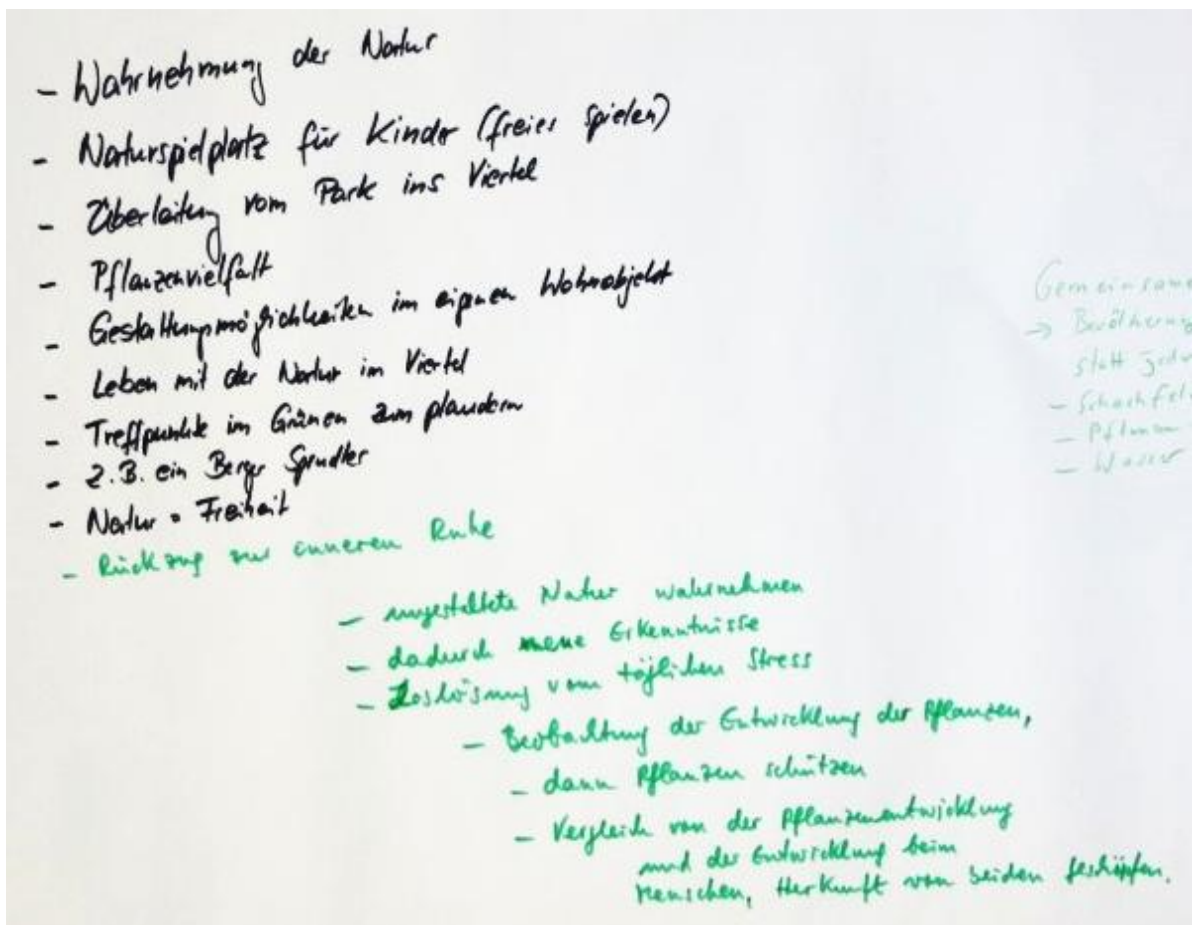 - Wahrnehmung der Natur
- Naturspielplatz für Kinder (freies Spielen)
- Überleitung vom Park ins Viertel
- Pflanzenvielfalt
- Gestaltungsmöglichkeiten im eigenen Wohnobjekt
- Leben mit der Natur im Viertel
- Treffpunkte im Grünen zum plaudern
- z.B. ein Berger Sprudler
- Natur = Freiheit
- Rückzug zur inneren Ruhe
- ungestaltete Natur wahrnehmen
- dadurch neue Erkenntnisse
- Loslösung vom täglichen Stress
- Beobachtung der Entwicklung der Pflanzen,
- dann Pflanzen schützen
- Vergleich von der Pflanzenentwicklung
und der Entwicklung beim
Menschen, Herkunft von beiden Geschöpfen.
Gemeinsame
→ Bevölkerung
statt
- Schachfel
-
- Wasser